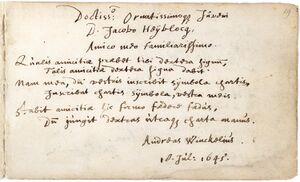 Doctiss:o Ornatissimoq3 Juveni
D. Jacobo Heÿblocq.
Amico meo familiarissimo.
Qualis amicitiæ præbet tibi dextera signū,
Talis amicitiæ dextera signa dabit.
Nam mea, dū vestris inscribit symbola chartis,
Inscribat chartis symbola, vestra meis.
Stabit amicitiæ sic firmo fœdere fœdus,
Dū jungit dextras utraq3 charta manus.
Andreas Winckelius.
18. Jul: 1645.